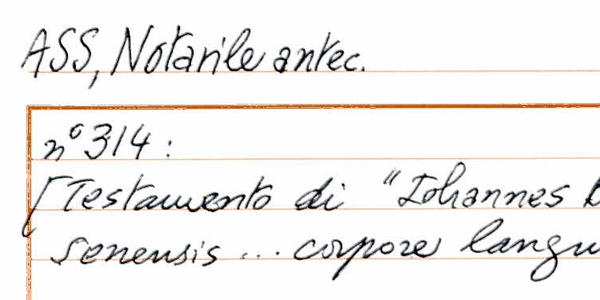 ASS, Notarile antec.
n° 314 :
[Testamento di "Iohannes
senensis ... corpore